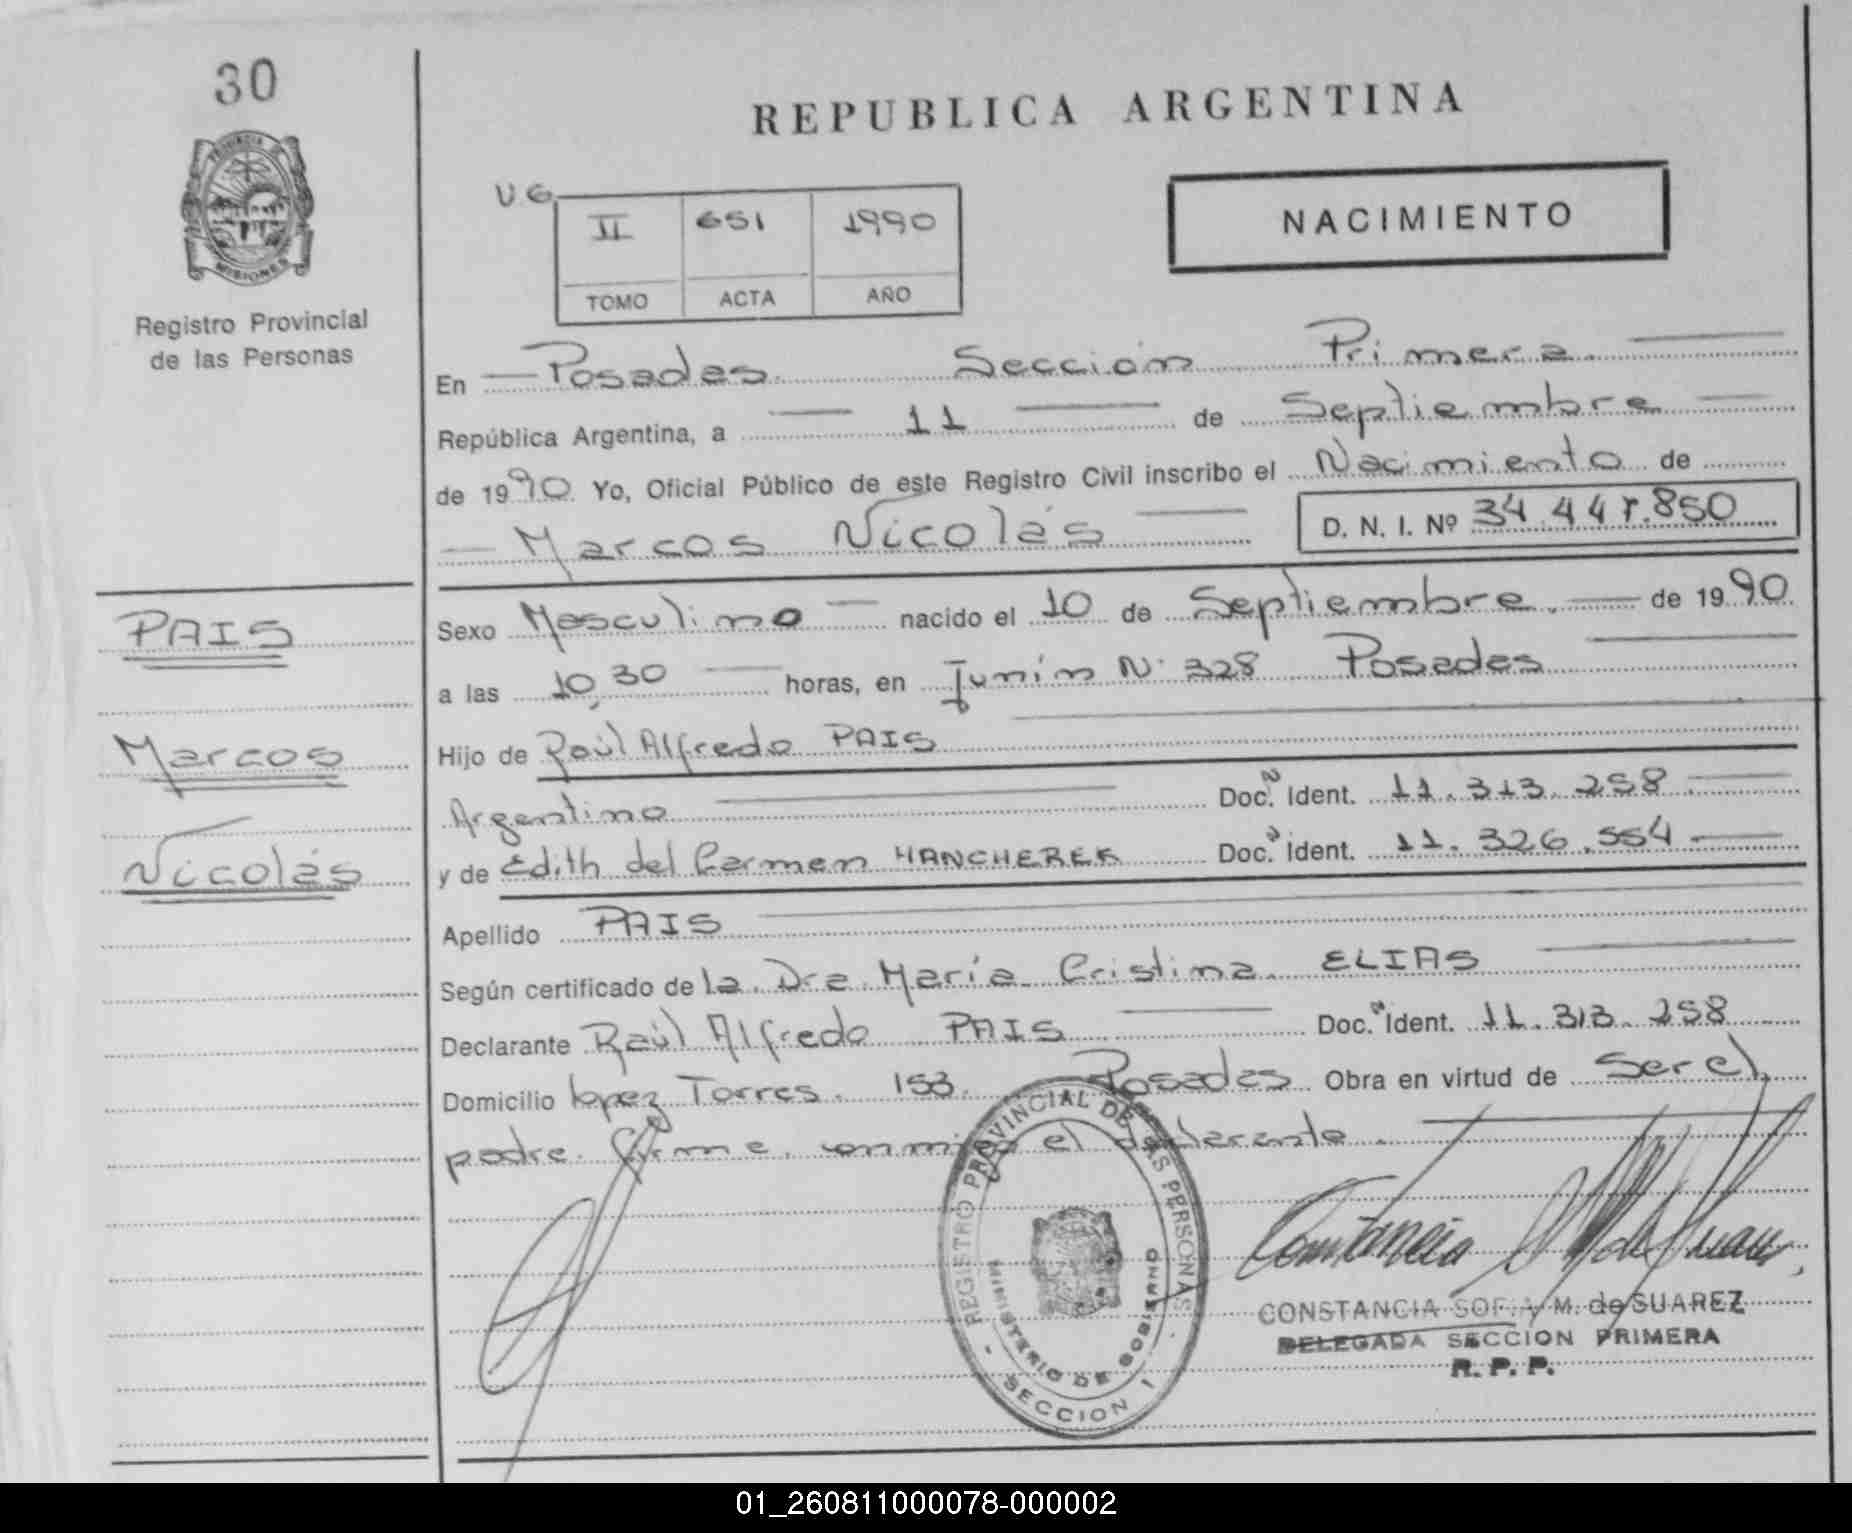 30
REPUBLICA ARGENTINA
PROVINCIA DE
MISIONES
Registro Provincial
de las Personas
NACIMIENTO
UG
II 651 1990
TOMO ACTA AÑO
En Posadas Sección Primera
República Argentina, a 11 de Septiembre
de 1990 Yo, Oficial Público de este Registro Civil inscribo el Nacimiento de
Marcos Nicolás D. N. I. Nº 34.447.850
PAIS
Marcos
Nicolás
Sexo Masculino nacido el 10 de Septiembre. de 1990
a las 10,30 horas, en Junín Nº 328 Posadas
Hijo de Raúl Alfredo PAIS
Argentino Doc. Ident. 11.313.258
y de Edith del Carmen HANCHEREK Doc. Ident. 11.326.554
Apellido PAIS
Según certificado de la Dra María Cristina ELIAS
Declarante Raúl Alfredo PAIS Doc. Ident. 11.313.258
Domicilio lopez Torres. 153. Posadas Obra en virtud de Ser el
padre. firma conmigo el declarante.
REGISTRO PROVINCIAL DE LAS PERSONAS
MINISTERIO DE GOBIERNO
SECCION 1
Constancia M de Suarez
CONSTANCIA SOFIA M. de SUAREZ
DELEGADA SECCION PRIMERA
R. P. P.
01_260811000078-000002